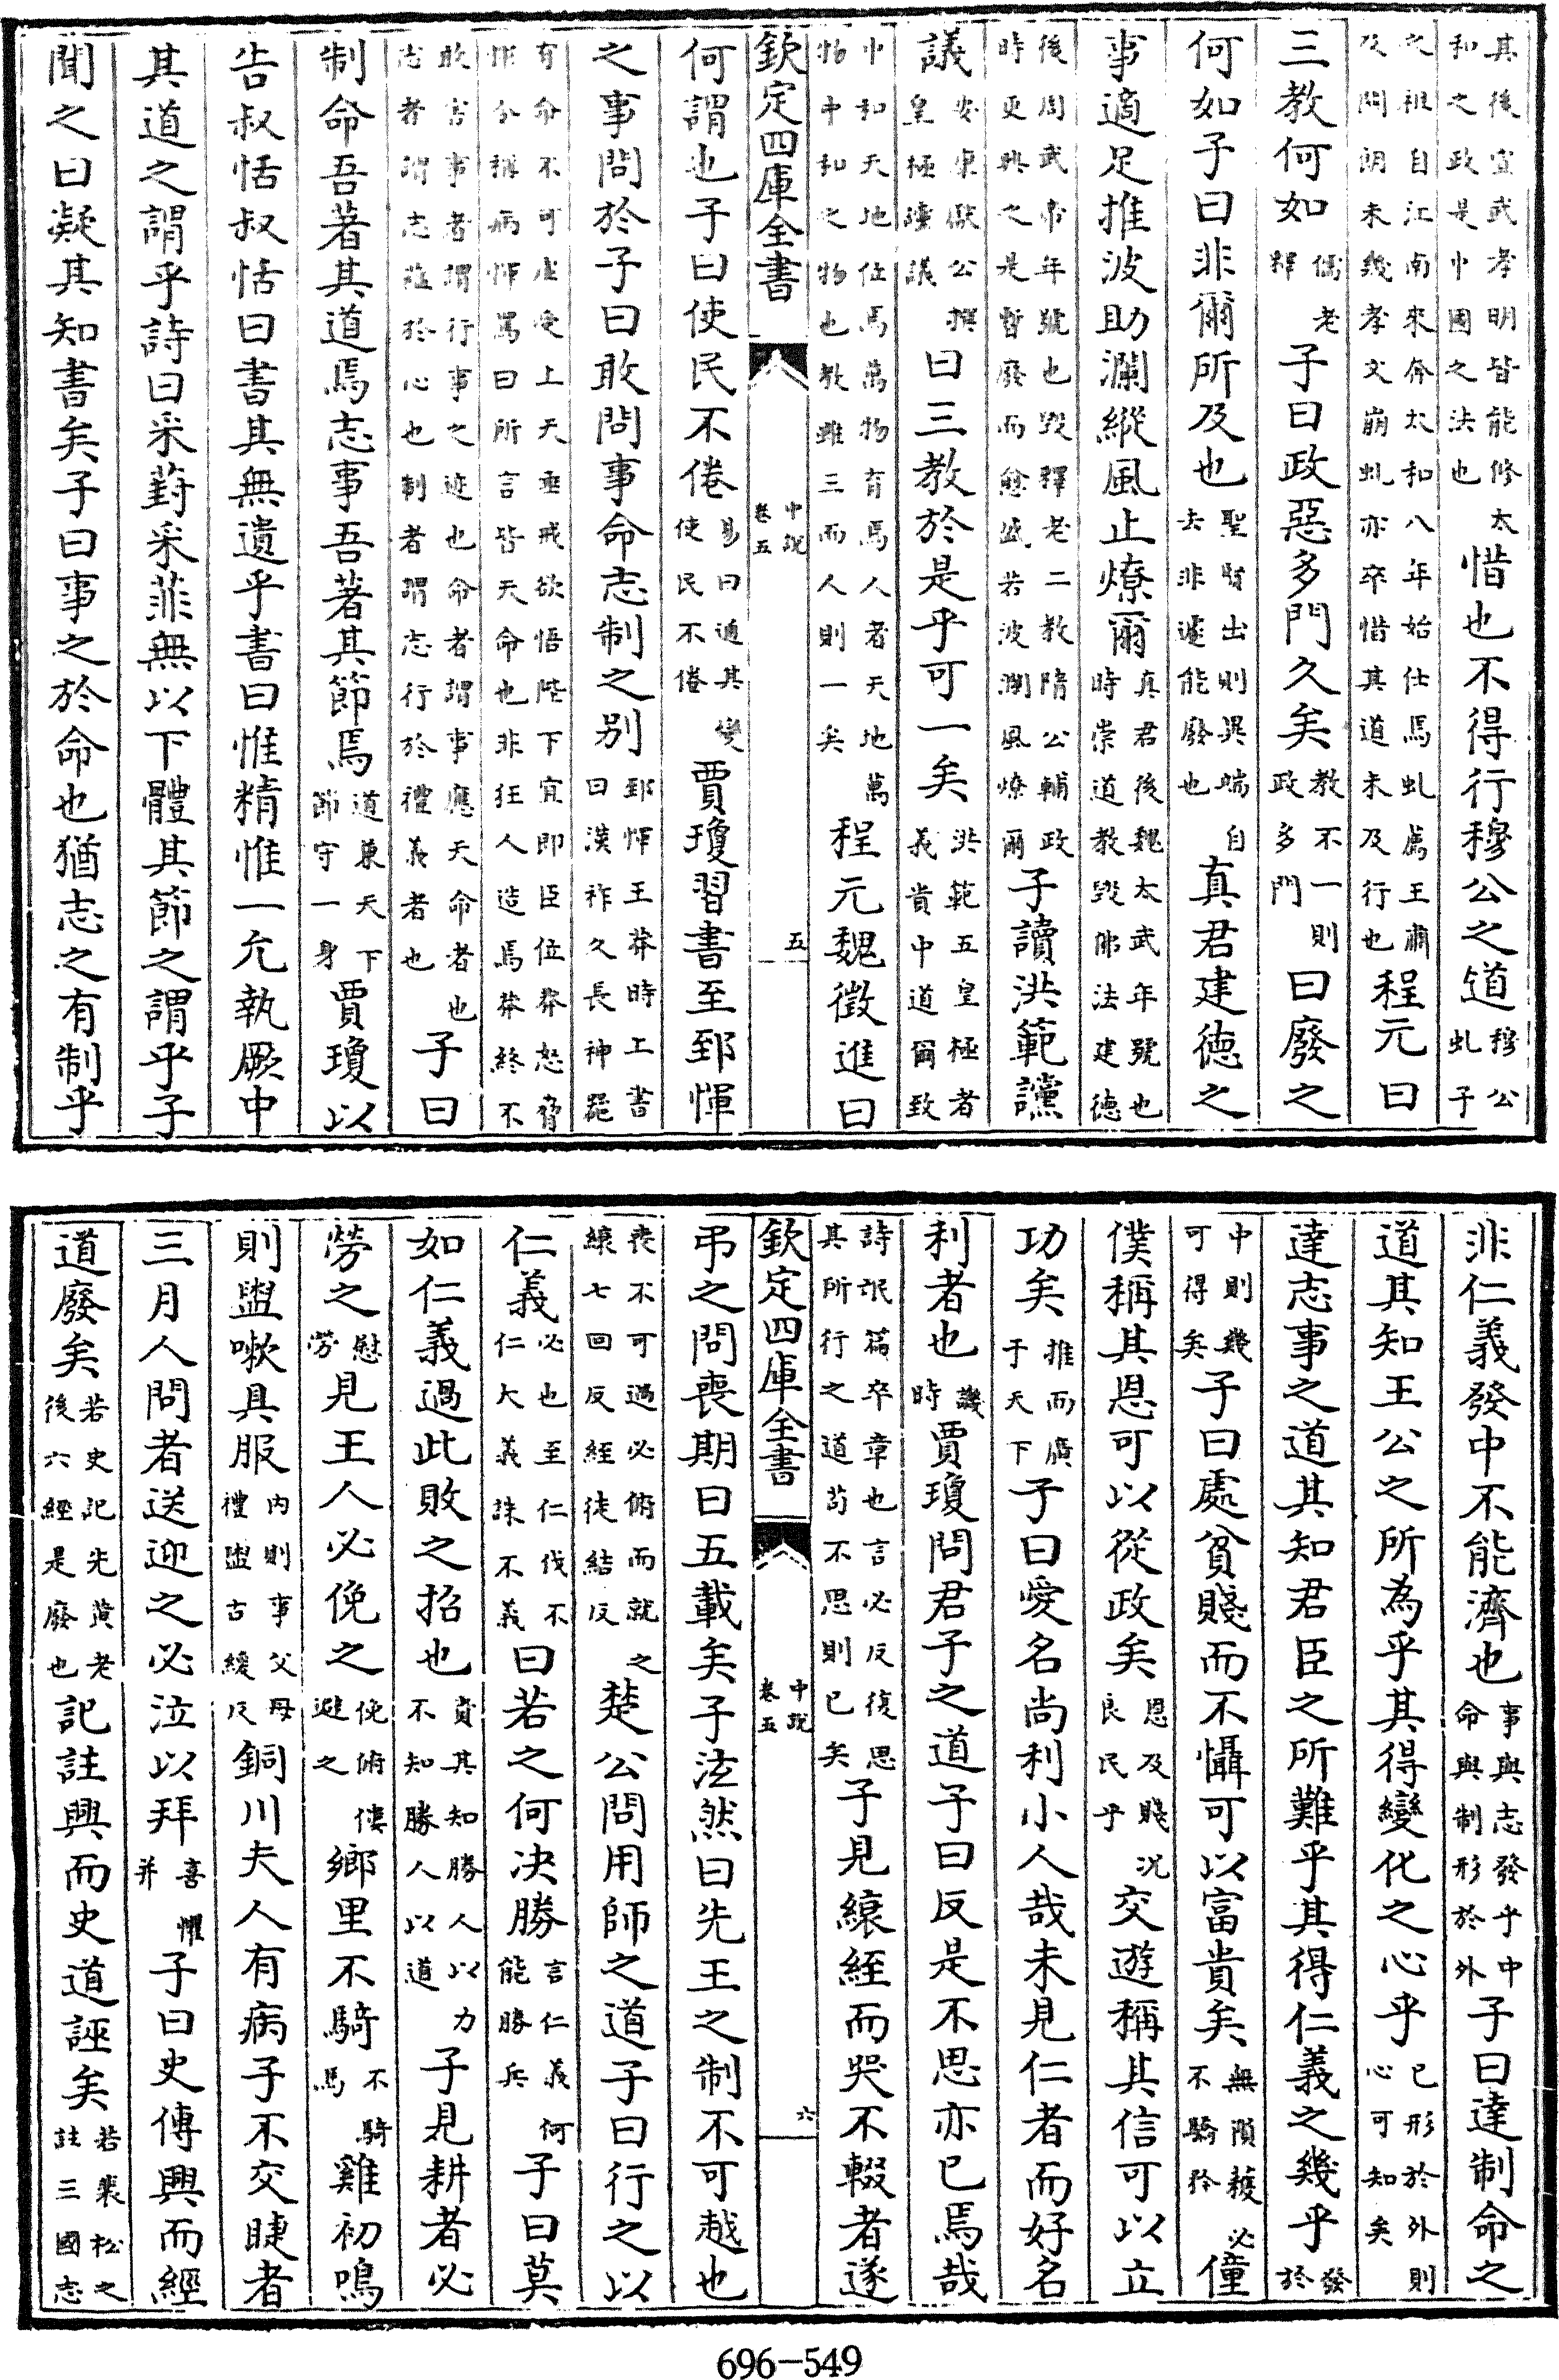 其後宣武孝明皆能修太和之政是中國之法也惜也不得行穆公之道穆公虬子
之祖自江南來奔太和八年始仕焉虬薦王肅及關朗未幾孝文崩虬亦卒惜其道未及行也程元曰
三教何如儒老釋子曰政惡多門久矣教不一則政多門曰廢之
何如子曰非爾所及也聖賢出則異端自去非遽能廢也真君建徳之
事適足推波助瀾縱風止燎爾真君後魏太武年號也時崇道教毀佛法建德
後周武帝年號也毀釋老二教隋公輔政時更興之是暫廢而愈盛若波瀾風燎爾子讀洪範讜
議安康獻公撰皇極讜議曰三教於是乎可一矣洪範五皇極者義貴中道爾致
中和天地位焉萬物育焉人者天地萬物中和之物也教雖三而人則一矣程元魏徵進曰
欽定四庫全書 中說卷五 五
何謂也子曰使民不倦易曰通其變使民不倦賈瓊習書至郅惲
之事問於子曰敢問事命志制之别郅惲王莽時上書曰漢祚久長神器
有命不可虛受上天垂戒欲悟陛下宜即臣位莽怒脅惲令稱病惲罵曰所言皆天命也非狂人造焉莽終不
敢害事者謂行事之迹也命者謂事應天命者也志者謂志蕴於心也制者謂志行於禮義者也子曰
制命吾著其道焉志事吾著其節焉道兼天下節守一身賈瓊以
告叔恬叔恬曰書其無遺乎書曰惟精惟一允執厥中
其道之謂乎詩曰采葑采菲無以下體其節之謂乎子
聞之曰凝其知書矣子曰事之於命也猶志之有制乎
非仁義發中不能濟也事與志發乎中命與制形於外子曰達制命之
道其知王公之所為乎其得變化之心乎已形於外則心可知矣
達志事之道其知君臣之所難乎其得仁義之幾乎發於
中則幾可得矣子曰處貧賤而不懾可以富貴矣無隕穫必不驕矜僮
僕稱其恩可以從政矣恩及賤况良民乎交遊稱其信可以立
功矣推而廣于天下子曰愛名尚利小人哉未見仁者而好名
利者也譏時賈瓊問君子之道子曰反是不思亦已焉哉
詩氓篇卒章也言必反復思其所行之道苟不思則已矣子見縗絰而哭不輟者遂
欽定四庫全書 中說卷五 六
弔之問喪期曰五載矣子泫然曰先王之制不可越也
喪不可過必俯而就之縗七回反絰徒結反楚公問用師之道子曰行之以
仁義必也至仁伐不仁大義誅不義曰若之何决勝言仁義何能勝兵子曰莫
如仁義過此敗之招也責其知勝人以力不知勝人以道子見耕者必
勞之慰勞見王人必俛之俛俯僂避之鄉里不騎不騎馬雞初鳴
則盥嗽具服內則事父母禮盥古緩反銅川夫人有病子不交睫者
三月人問者送迎之必泣以拜喜懼并子曰史傳興而經
道廢矣若史記先黄老後六經是廢也記註興而史道誣矣若裴松之註三國志
696-549